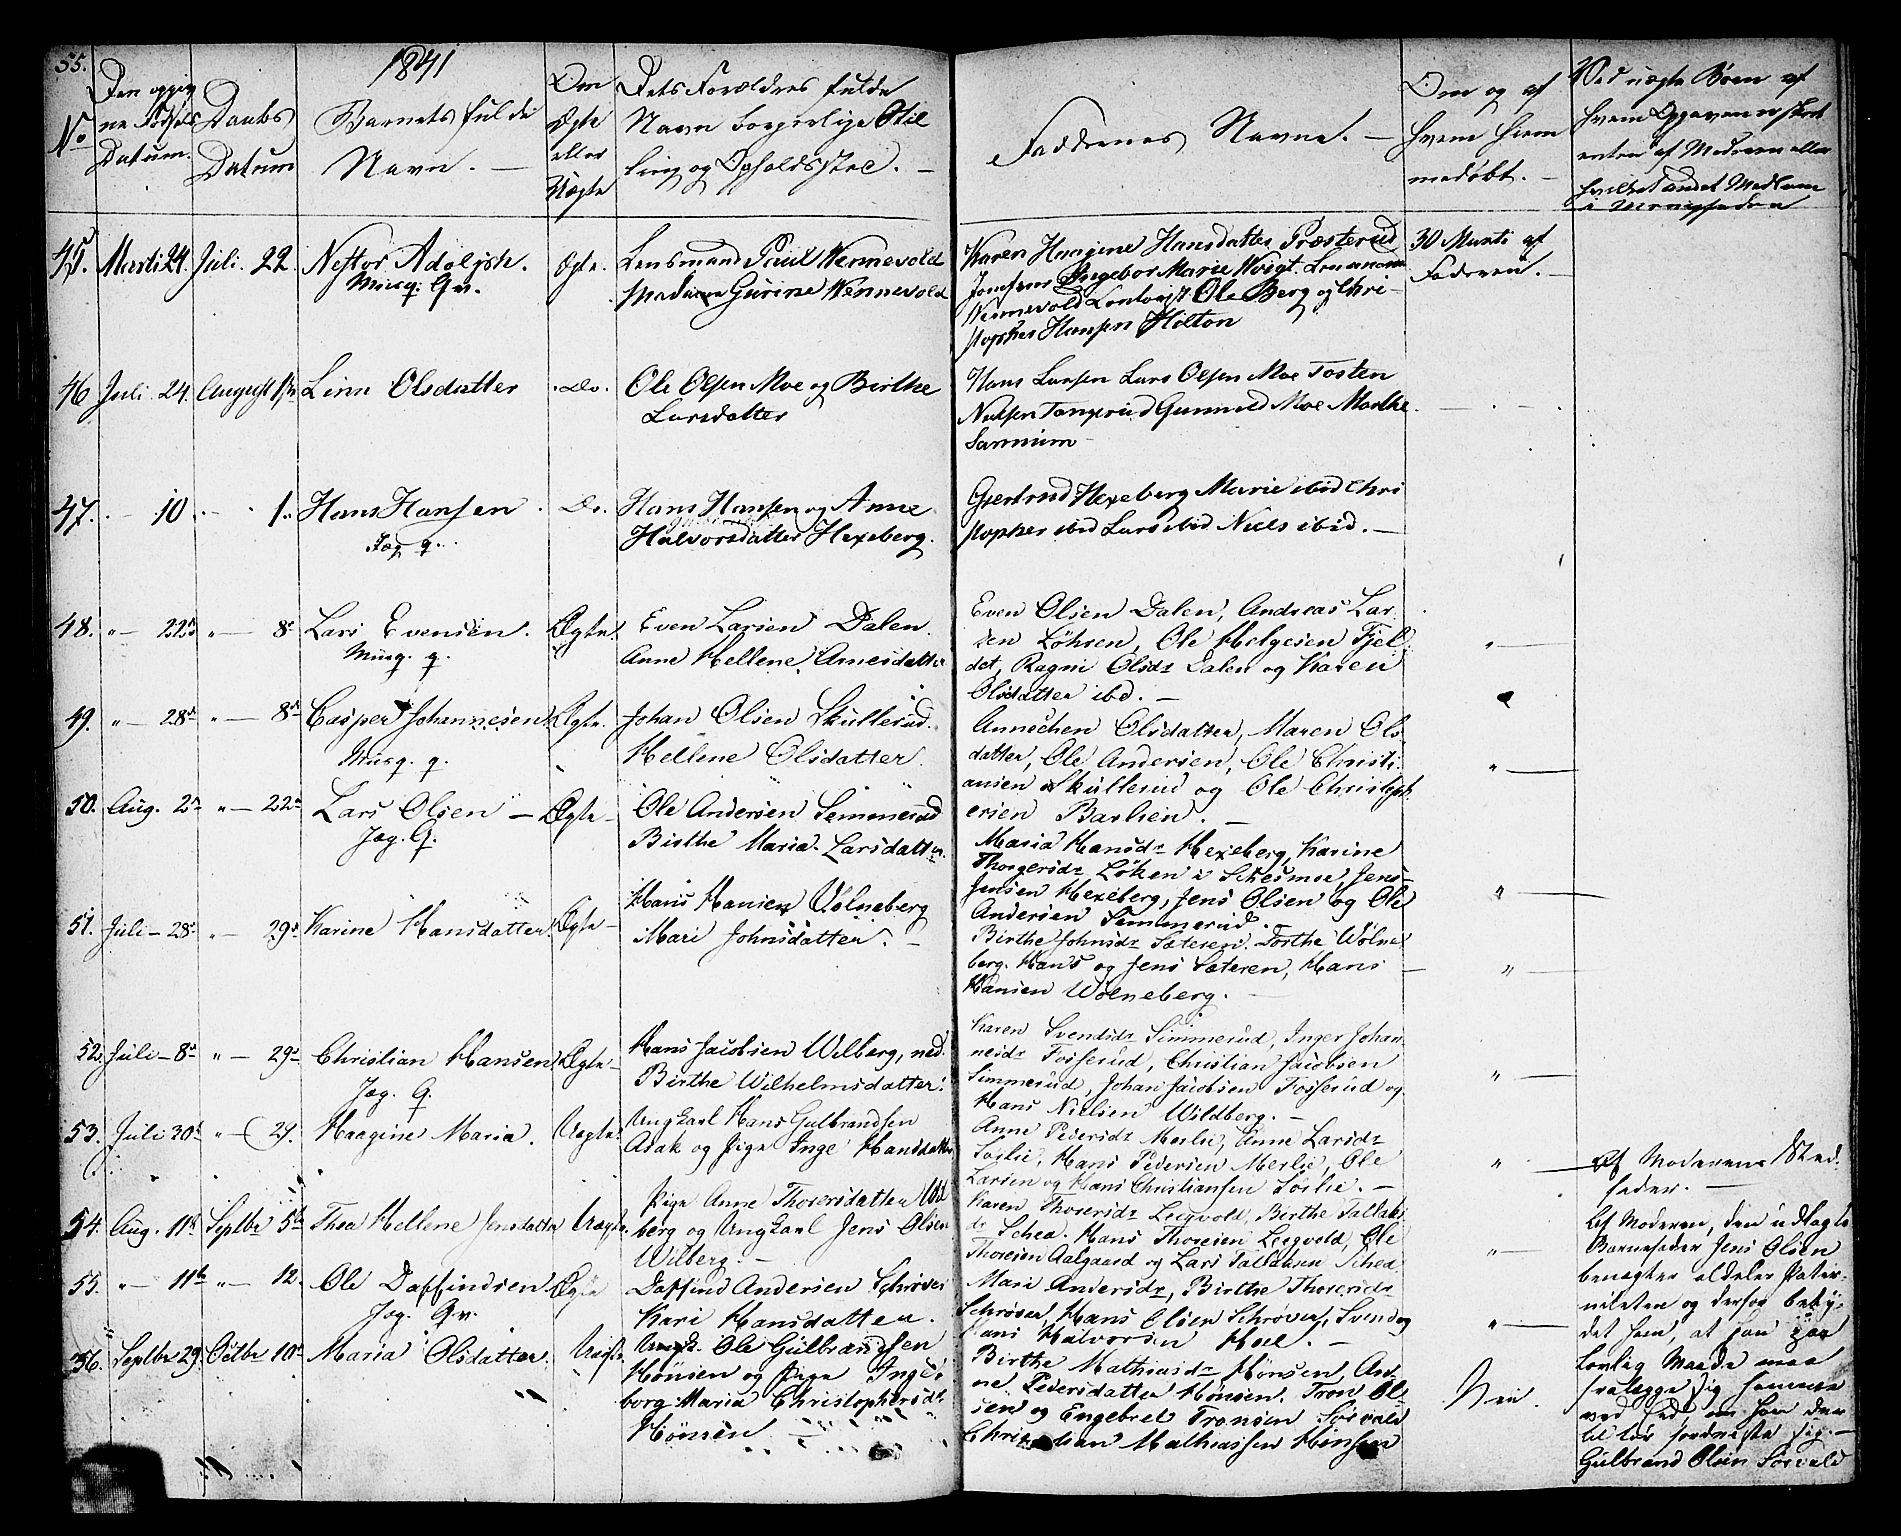 55.
1841
No
Den opgiv
ne Fødsels
Datum.
Daabs
Datum
Barnets fulde
Navn. —
Om
Ægte
eller
Uægte
Dets Forældres fulde
Navn borgerlige Stil
ling og Opholdssted. —
Faddernes Navne. —
Om og af
hvem hjem
medøbt. —
Ved uægte Børn af
hvem Opgaven er skeet
enten af Moderen eller
hvilket andet Medlem
i Menigheden
45. Marti 24. Juli. 22. Nestor Adolph. Ægte. Lensmand Paul Wennevold
Musq. Qv.
Madame Gurine Wennevold
Karen Haagine Hansdatter Præsterud
Jomfrue Ingebor Marie Woigt. Lensmand
Wennevold Ole Berg og Chri-
stopher Hansen Holton
30 Marti af
Faderen. —
46 Juli 24. August 1ste Line Olsdatter Do. Ole Olsen Moe og Birthe
Larsdatter
Hans Larsen Lars Olsen Moe Tosten
Gunnild Moe Marthe
47. — 10 — 1. Hans Hansen Do. Hans Hansen og Anne
Jæg q.
Halvorsdatter Hexeberg.
Gjertrud Hexeberg Marie ibid Chri
stopher ibid Lars ibid Niels ibid. —
48. " — 22de " — 8de Lars Evensen. Ægte. Even Larsen Dalen.
Musq. q.
Anne Hellene Arnesdatter
Even Olsen Dalen, Andreas Lar
sen Løhren, Ole Helgesen Fjel
det, Ragni Olsdr Dalen og Karen
Olsdatter ibd. —
" —
49. " — 28de " — 8de Casper Johannesen Ægte. Johan Olsen Skullerud.
Musq. q.
Hellene Olsdatter.
Annechen Olsdatter, Maren Ols
datter, Ole Andersen, Ole Christi
ansen Skullerud og Ole Christoph
ersen Barlien. —
" —
50. Aug. 2den " — 22de Lars Olsen — Ægte — Ole Andersen Semmerud
Jæg. Q.
Birthe Maria Larsdatter.
Maria Hansdr Hexeberg, Karine
Thorgersdr Løken i Schesmoe, Jens
Jensen Hexeberg, Jens Olsen og Ole
Andersen Semmerud.
" —
51. Juli — 28de " — 29de Karine Hansdatter. Ægte — Hans Hansen Wolneberg
Mari Johnsdatter. —
Birthe Johnsdr Sæteren. Dorthe Wolne
berg. Hans og Jens Sæteren, Hans
Hansen Wolneberg. —
" —
52. Juli — 8de " — 29de Christian Hansen Ægte — Hans Jacobsen Wilberg, ned.
Jæg. Q.
Birthe Wilhelmsdatter.
Karen Svendsdr Simmerud, Inger Johan
nesdr Fosserud, Christian Jacobsen
Simmerud, Johan Jacobsen Fosserud og
Hans Nielsen Wildberg. —
" —
53. Juli 30te " — 29. Haagine Maria. Uægte. Ungkarl Hans Gulbrandsen
Asak og Pige Inge Hansdatter
Anne Pedersdr Merlie, Anne Larsdr
Sørlie, Hans Pedersen Merlie, Ole
Larsen og Hans Christiansen Sørlie. —
" — Af Moderens Sted-
fader. —
54. Aug. 11te Septbr 5te Thea Hellene Jensdatter Uægte. Pige Anne Thorersdatter Wil
berg og Ungkarl Jens Olsen
Wilberg. —
Karen Thorersdr Leigvold, Birthe
Schea. Hans Thoresen Leigvold, Ole
Thoresen Aalgaard og Lars Schea
" — Af Moderen, den udlagte
Barnefader Jens Olsen
benægter aldeles Pater-
niteten og derfor bety-
det ham, at han paa
lovlig Maade maa
fralægge sig samme
ved Eed, om han der
til tør fordriste sig. —
55. " — 11te " — 12. Ole Daffindsen Ægte Daffind Andersen Schrøver
Jæg. Qv.
Kari Hansdatter.
Mari Andersdr, Birthe Thoresdr
Schrøver, Hans Olsen Schrøver, Svend og
Hans Halvorsen Hoel. —
" —
56. Septbr 29. Octbr 10de Maria Olsdatter. Uægte. Ungk. Ole Gulbrandsen
Hønsen og Pige Inge-
borg Maria Christophersdr
Hønsen —
Birthe Mathiasdr Hønsen, An-
ne Pedersdatter Hønsen. Tron Ol-
sen og Engebret Tronsen Sørvald
Christian Mathiassen Hønsen
Nei.
Gulbrand Olsen Sørvald